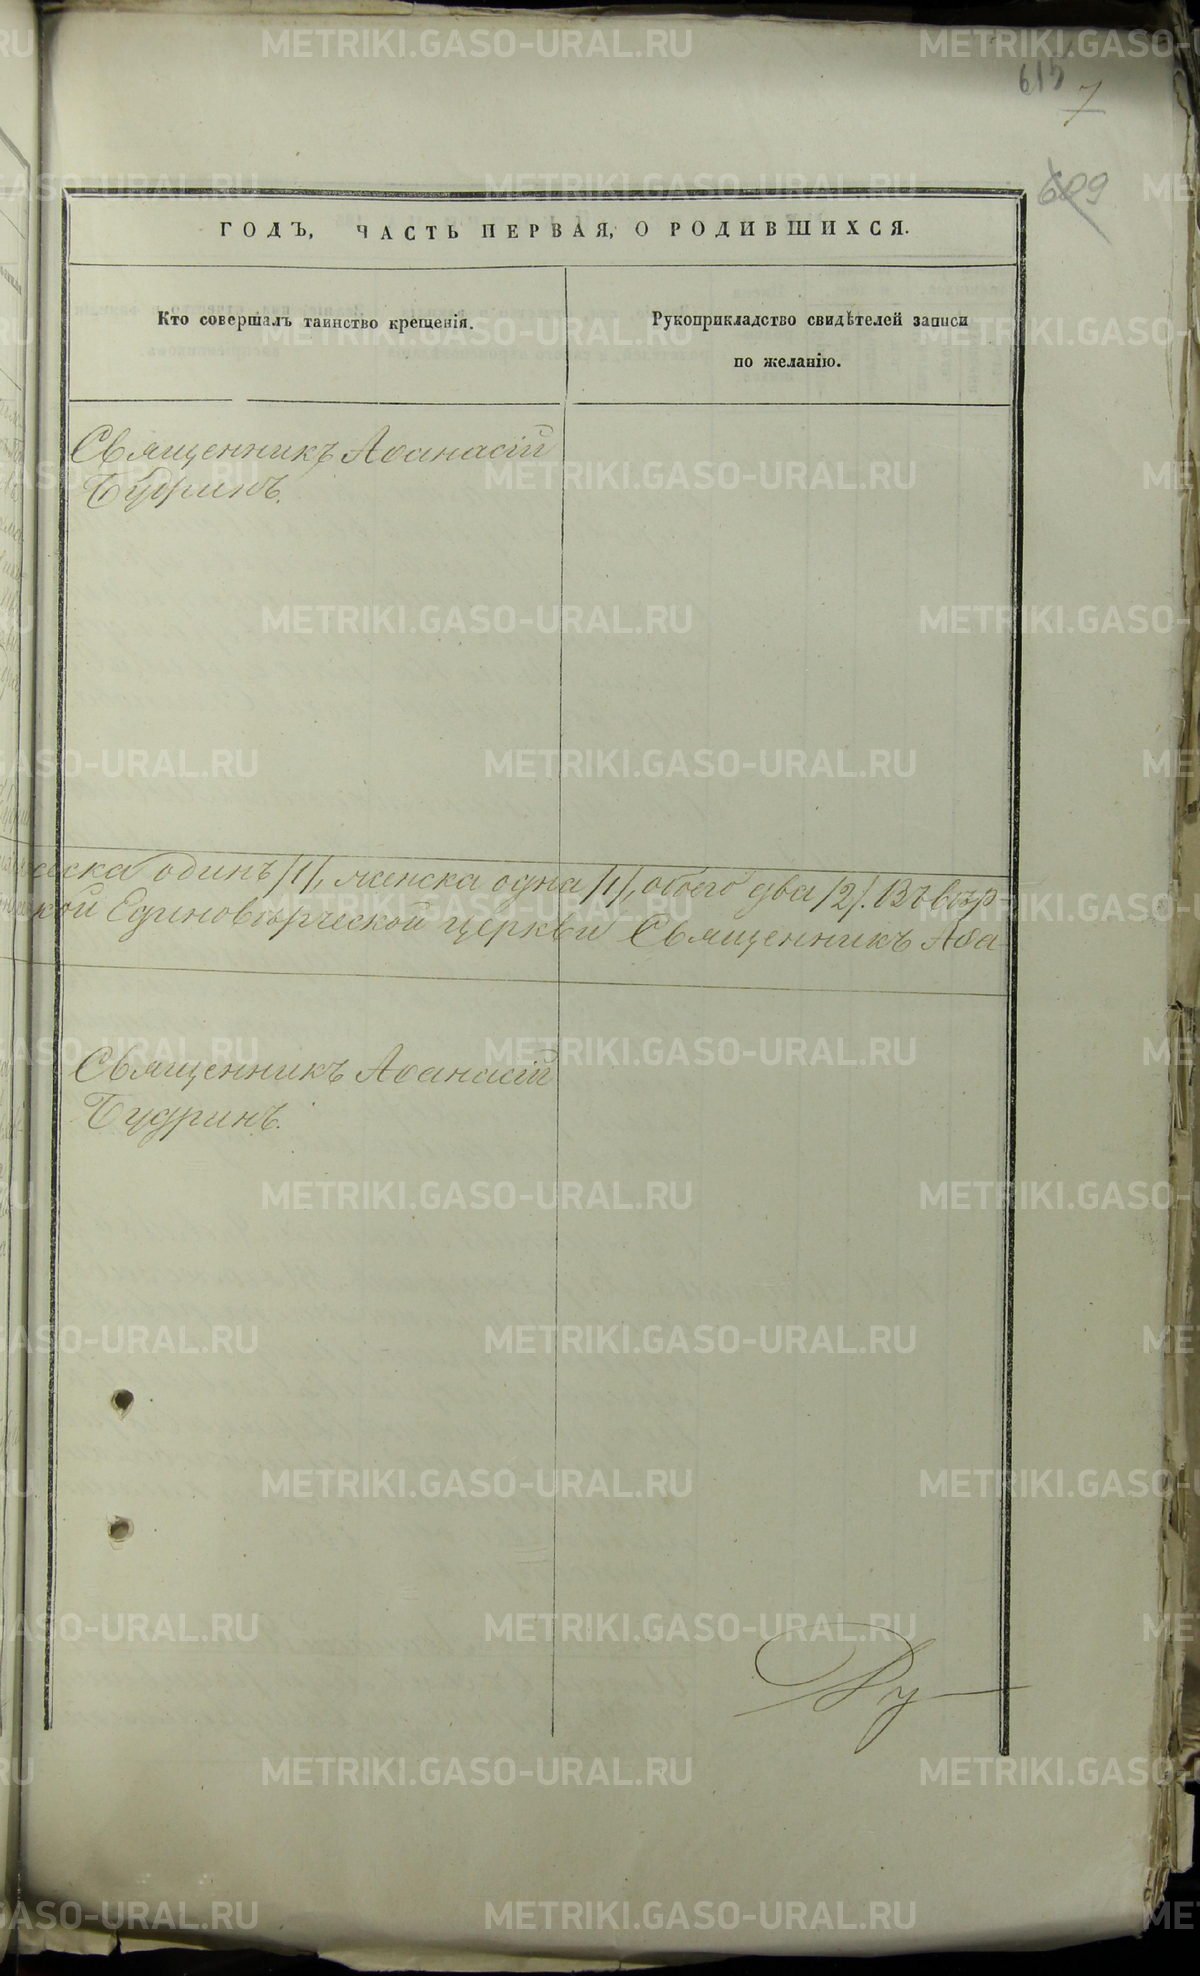 615
7
609
ГОДЪ, ЧАСТЬ ПЕРВАЯ, О РОДИВШИХСЯ.
Кто совершалъ таинство крещенія.
Рукоприкладство свидѣтелей записи
по желанію.
Священникъ Аѳанасій
Будринъ.
одинъ /1/, женска одна /1/, обоего два /2/. Въ вѣр-
кой Единовѣрческой церкви Священникъ Аѳа-
Священникъ Аѳанасій
Будринъ.
Бу
METRIKI.GASO-URAL.RU